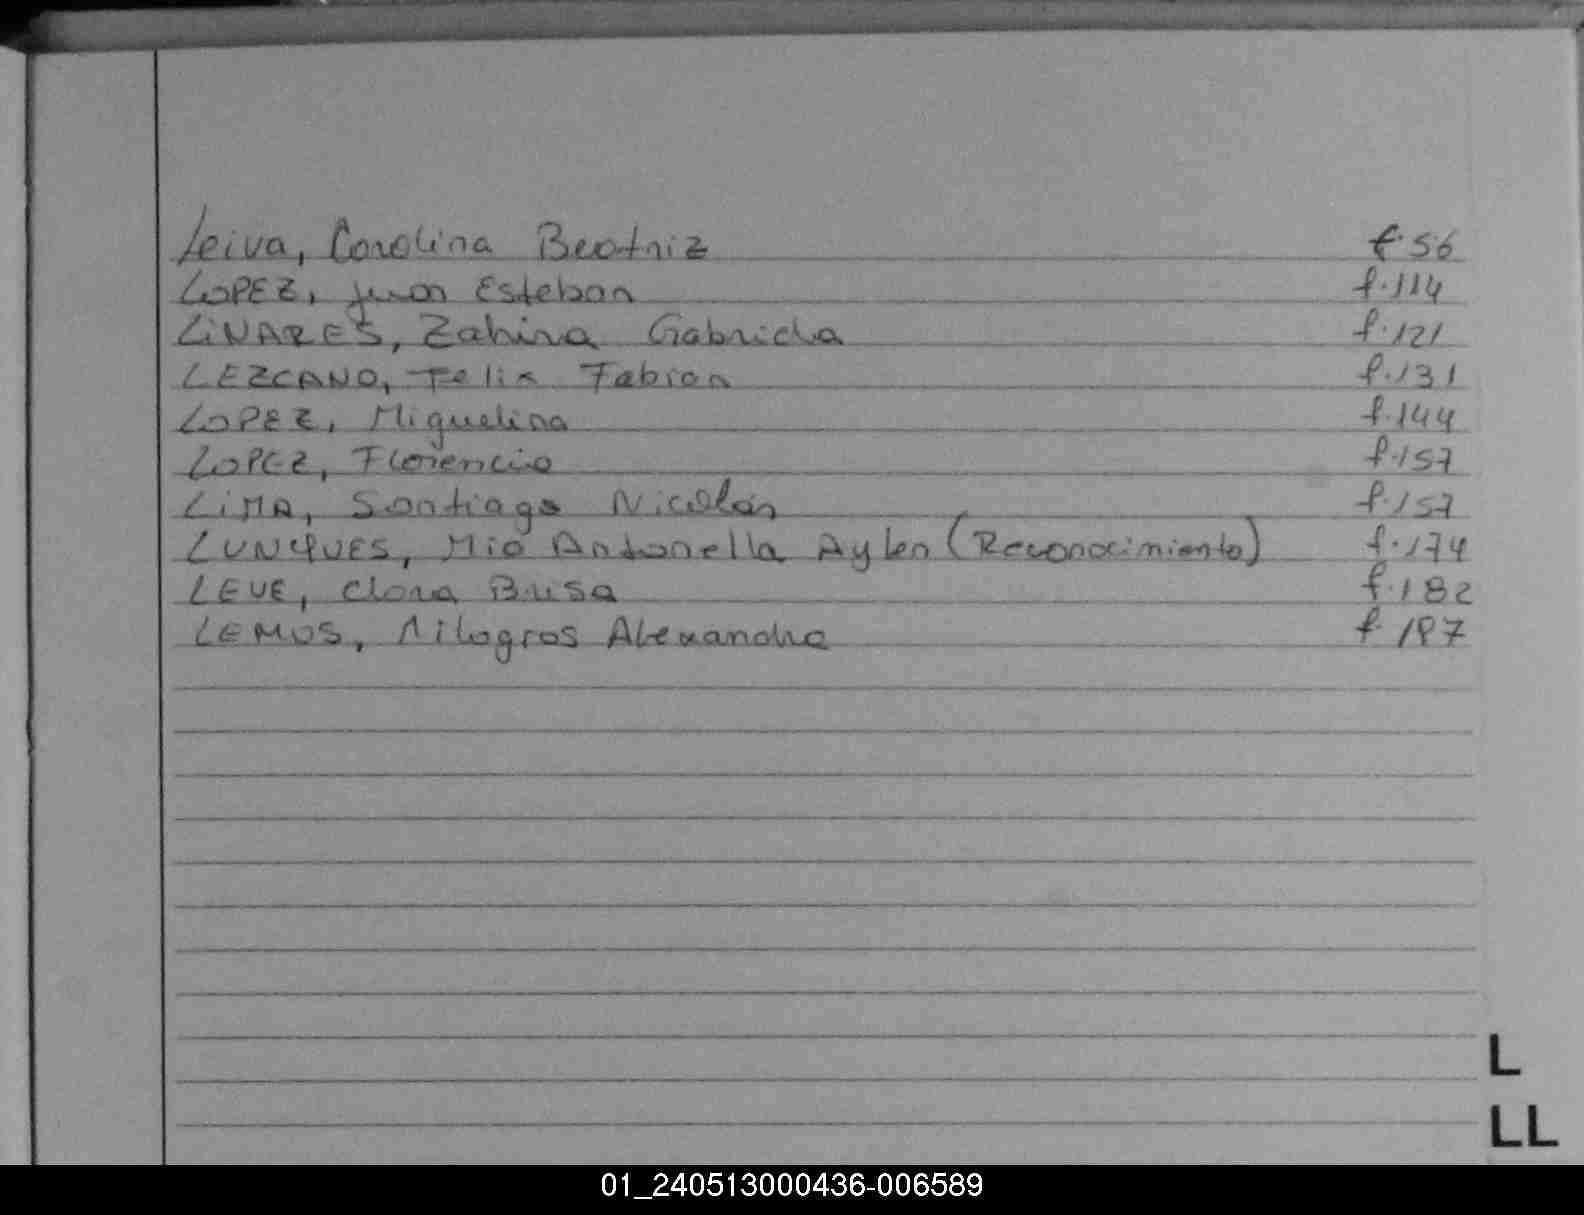 Leiva, Carolina Beatriz f. 56
LOPEZ, Juan Esteban f. 114
LiNARES, Zahira Gabriela f. 121
LEZCANO, Felix Fabian f. 131
LOPEZ, Miguelina f. 144
LOPEZ, Florencio f. 157
LiMA, Santiago Nicolás f. 157
LUNQUES, Mia Antonella Aylen (Reconocimiento) f. 174
LEUE, Clara Brisa f. 182
LEMOS, Milagros Alexandra f. 187
L
LL
01_240513000436-006589